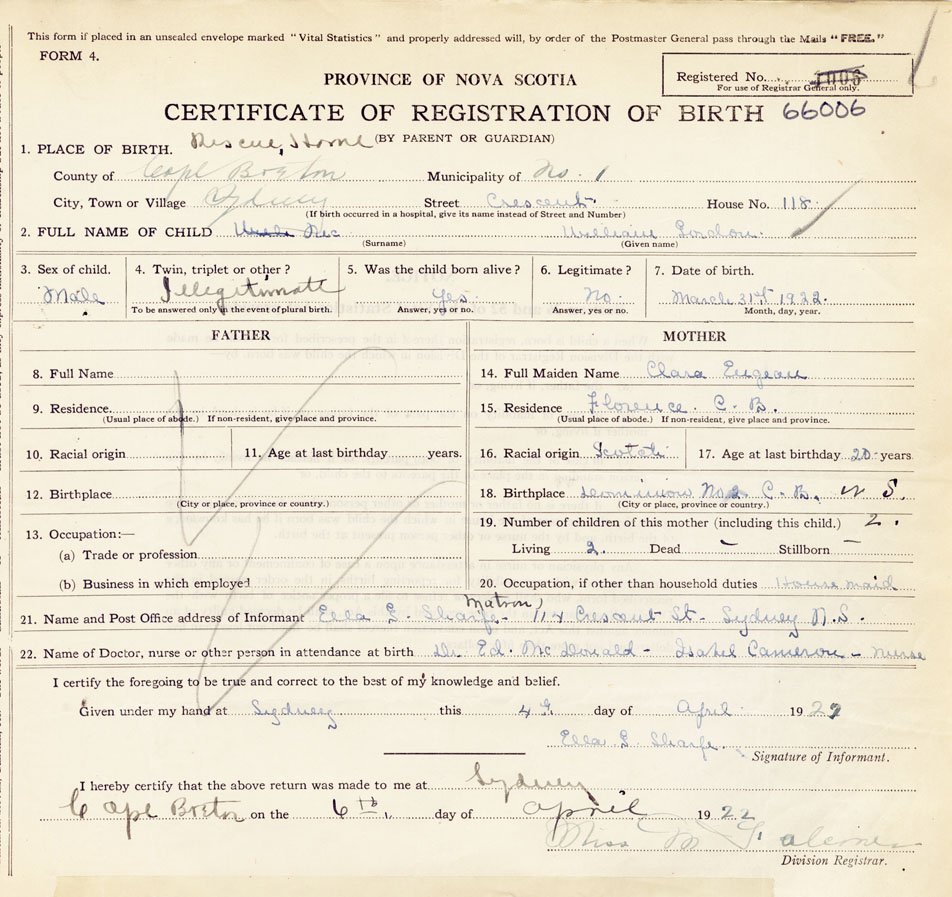 This form if placed in an unsealed envelope marked "Vital Statistics" and properly addressed will, by order of the Postmaster General pass through the Mails "FREE."
FORM 4.
Registered No.
For use of Registrar General only.
PROVINCE OF NOVA SCOTIA
CERTIFICATE OF REGISTRATION OF BIRTH 66006
(BY PARENT OR GUARDIAN)
1. PLACE OF BIRTH. Rescue Home
County of Cape Breton Municipality of No. 1
City, Town or Village Sydney Street Crescent House No. 118
(If birth occurred in a hospital, give its name instead of Street and Number)
2. FULL NAME OF CHILD William Gordon
(Surname) (Given name)
3. Sex of child. 4. Twin, triplet or other? 5. Was the child born alive? 6. Legitimate? 7. Date of birth.
Male Illegitimate Yes. No. March 31st 1922.
To be answered only in the event of plural birth. Answer, yes or no. Answer, yes or no. Month, day, year.
FATHER MOTHER
8. Full Name
14. Full Maiden Name Clara
9. Residence
(Usual place of abode.) If non-resident, give place and province.
15. Residence Florence C. B.
(Usual place of abode.) If non-resident, give place and province.
10. Racial origin 11. Age at last birthday years.
16. Racial origin Scotch 17. Age at last birthday 20 years
12. Birthplace
(City or place, province or country.)
18. Birthplace Dominion No 2 C. B. N S.
(City or place, province or country.)
13. Occupation:—
19. Number of children of this mother (including this child.) 2.
(a) Trade or profession
Living 2. Dead – Stillborn –
(b) Business in which employed
20. Occupation, if other than household duties House maid
Matron
21. Name and Post Office address of Informant Ella G. Sharfe - 114 Crescent St - Sydney N.S.
22. Name of Doctor, nurse or other person in attendance at birth Dr. Ed. McDonald - Isabel Cameron - nurse
I certify the foregoing to be true and correct to the best of my knowledge and belief.
Given under my hand at Sydney this 4 day of April 1922
Ella G. Sharfe
Signature of Informant.
I hereby certify that the above return was made to me at Sydney
Cape Breton on the 6th day of April 1922
Miss M
Division Registrar.